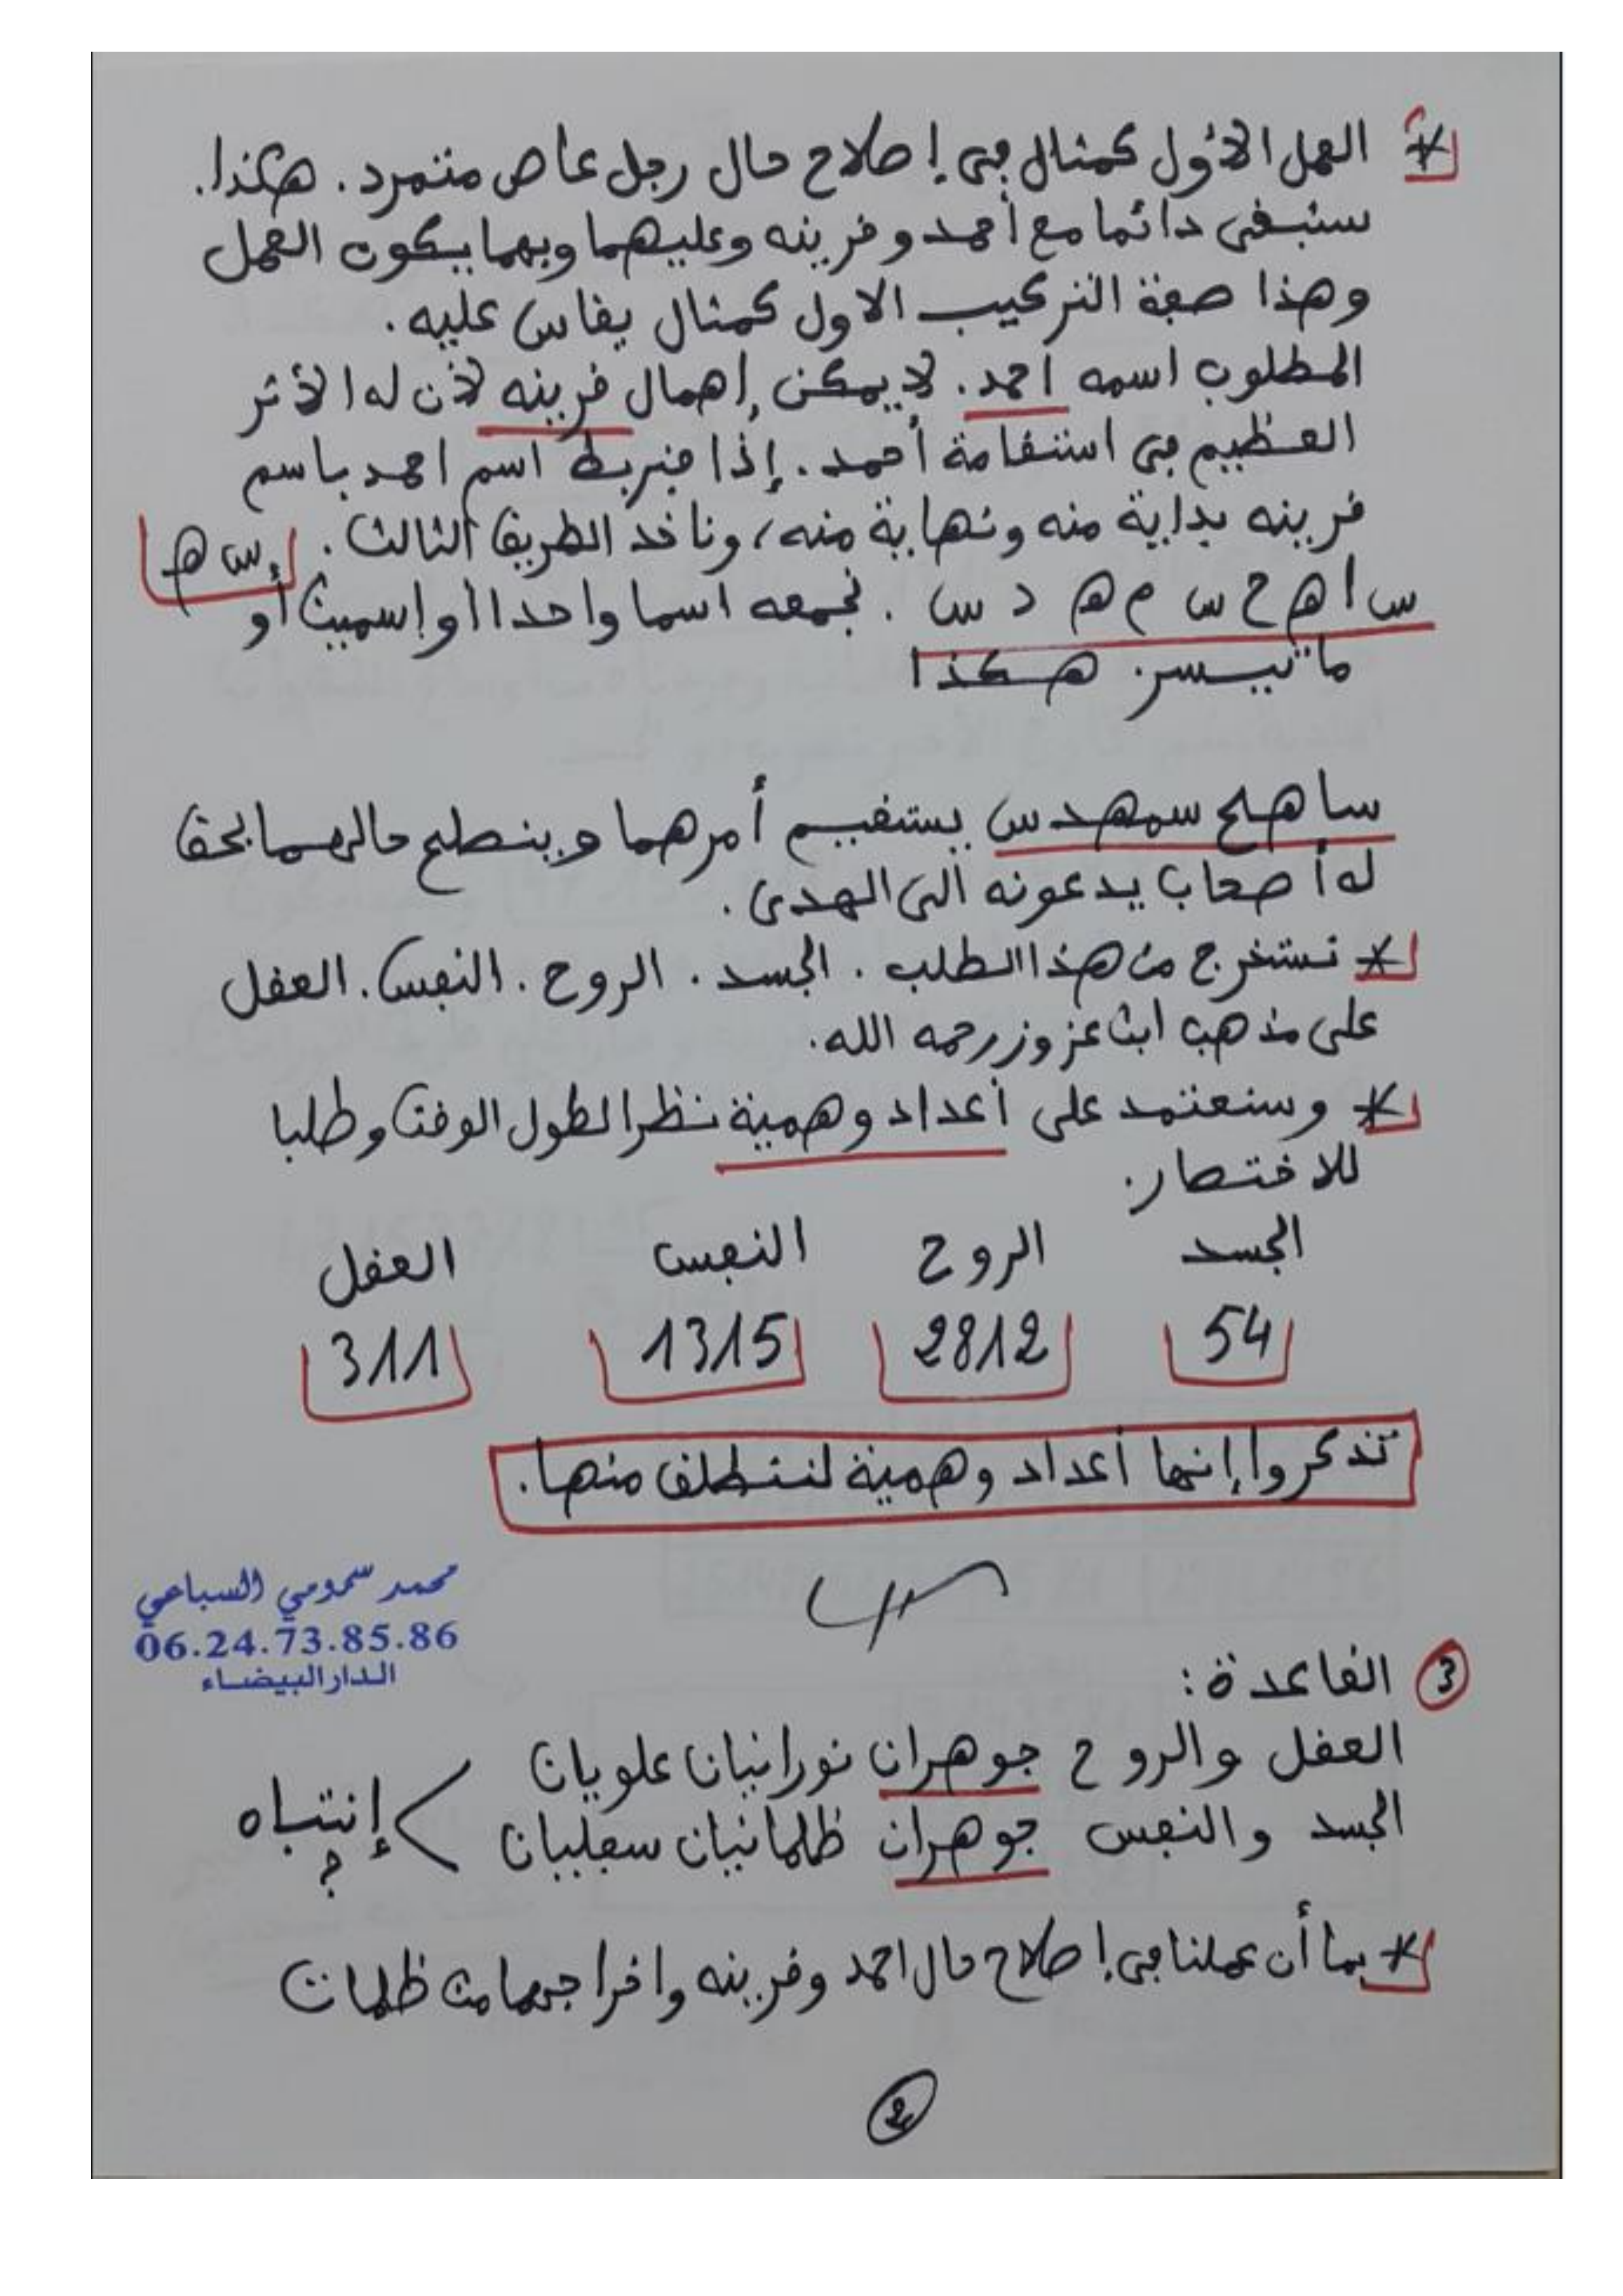 * العمل الأول كمثال في إصلاح حال رجل عاص متمرد. هكذا.
سنبقى دائما مع أحمد وقرينه وعليهما وبهما يكون العمل
وهذا صفة التركيب الاول كمثال يقاس عليه.
المطلوب اسمه احمد. لا يمكن إهمال قرينه لأن له الأثر
العظيم في استقامة أحمد. إذا فنربط اسم احمد باسم
قرينه بداية منه ونهاية منه، وناخد الطريق الثالث. س ه
س ا ه ح س م ه د س . نجمعه اسما واحدا أو إسمين أو
ما تيسر. هكذا
ساهح سمهدس يستقيم أمرهما وينصلح حالهما بحق
له أصحاب يدعونه الى الهدى.
* نستخرج من هذا الطلب . الجسد . الروح . النفس . العقل
على مذهب ابن عزوز رحمه الله.
* وسنعتمد على أعداد وهمية نظرا لطول الوقت وطلبا
للاختصار.
الجسد الروح النفس العقل
54 2812 1315 311
تذكروا إنها أعداد وهمية لننطلق منها.
محمد سمومي السباعي
06.24.73.85.86
الدار البيضاء
3 القاعدة:
العقل والروح جوهران نورانيان علويان
الجسد والنفس جوهران ظلمانيان سفليان
إنتباه
؟
* بما أن عملنا في إصلاح حال احمد وقرينه واخراجهما من ظلمات
2